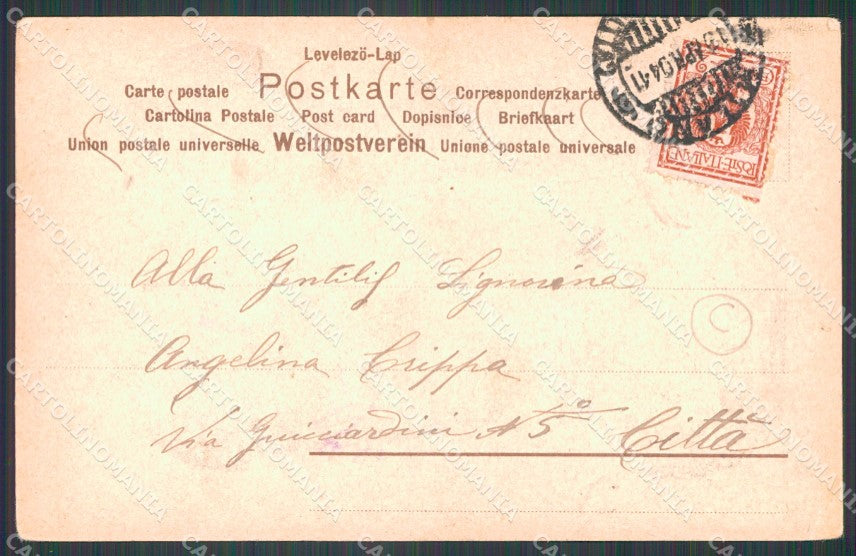 Levelezö-Lap
Carte postale Postkarte Correspondenzkarte
Cartolina Postale Post card Dopisnice Briefkaart
Union postale universelle Weltpostverein Unione postale universale
POSTE·ITALIANE
Alla Gentil<sup></sup> Signorina
Angelina Crippa
Via Guicciardini N 5° Città
C
CARTOLINOMANIA